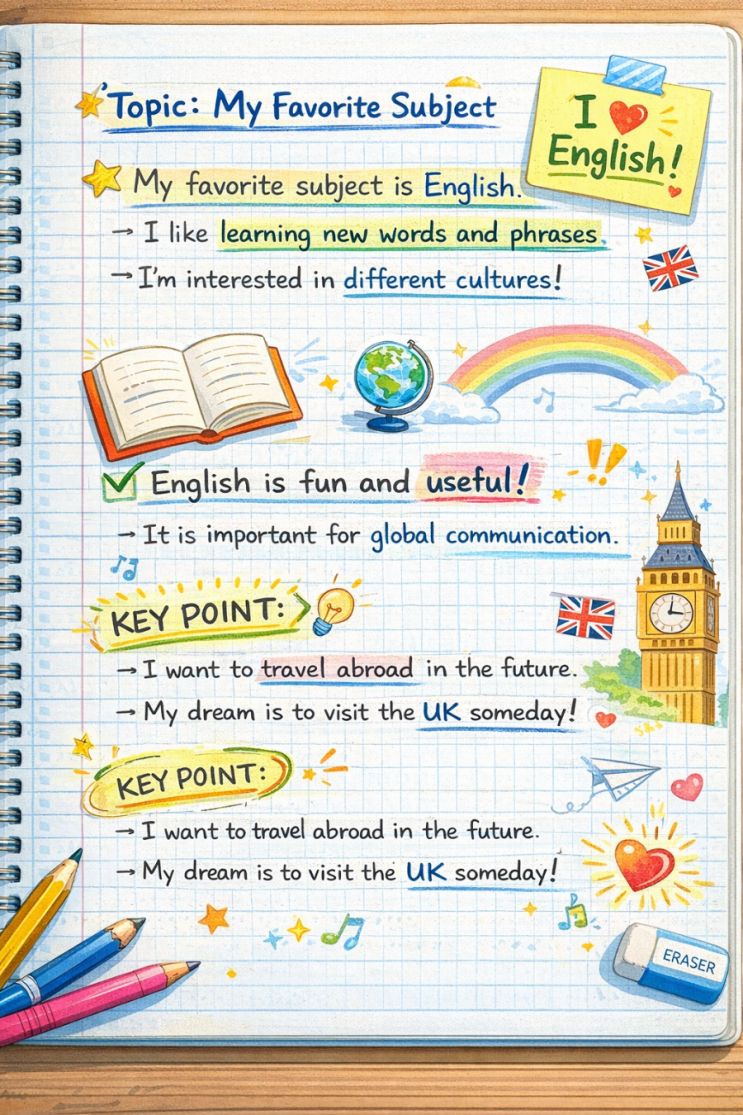 Topic: My Favorite Subject
I ❤ English!
My favorite subject is English.
→ I like learning new words and phrases.
→ I'm interested in different cultures!
English is fun and useful!
→ It is important for global communication.
KEY POINT:
→ I want to travel abroad in the future.
→ My dream is to visit the UK someday!
KEY POINT:
→ I want to travel abroad in the future.
→ My dream is to visit the UK someday!
ERASER